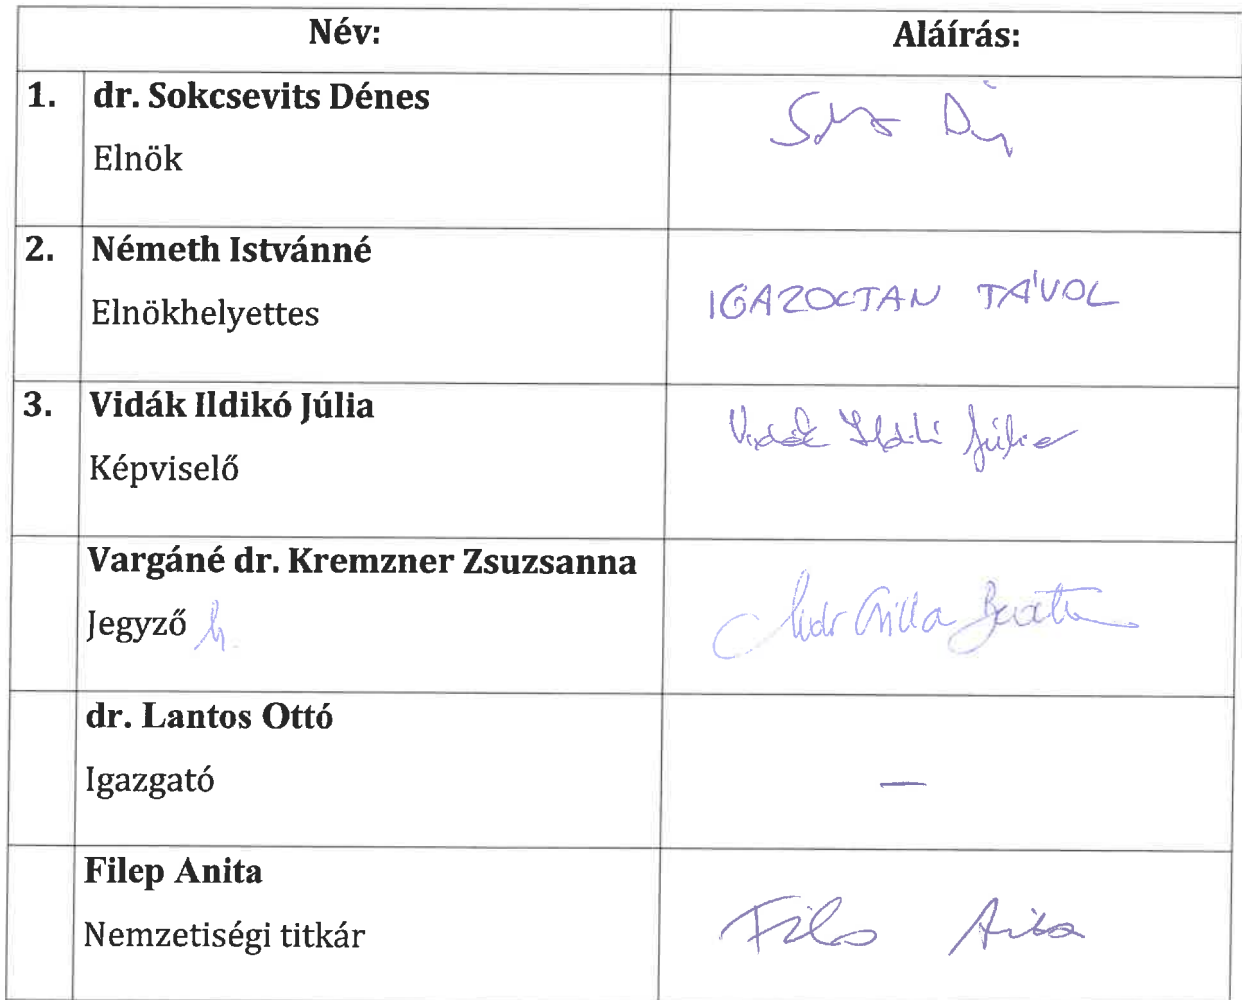 Név: Aláírás:
1. dr. Sokcsevits Dénes
Elnök
2. Németh Istvánné
Elnökhelyettes IGAZOLTAN TÁVOL
3. Vidák Ildikó Júlia
Vidák Ildikó Júlia
Képviselő
Vargáné dr. Kremzner Zsuzsanna
Jegyző h.
dr. Lantos Ottó
Igazgató —
Filep Anita
Nemzetiségi titkár Filep Anita